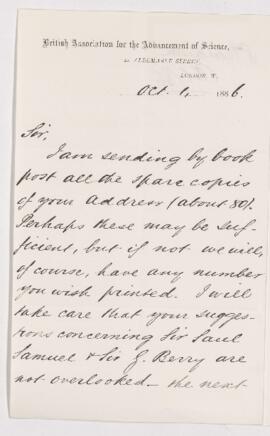 British Association for the Advancement of Science,
22 ALBEMARLE STREET,
LONDON, W.
Oct. 4, 1886.
Sir,
I am sending by book
post all the spare copies
of your Address (about 80).
Perhaps these may be suf-
ficient, but if not we will,
of course, have any number
you wish printed. I will
take care that your sugges-
tions concerning Sir Saul
Samuel & Sir G. Berry are
not overlooked – the next